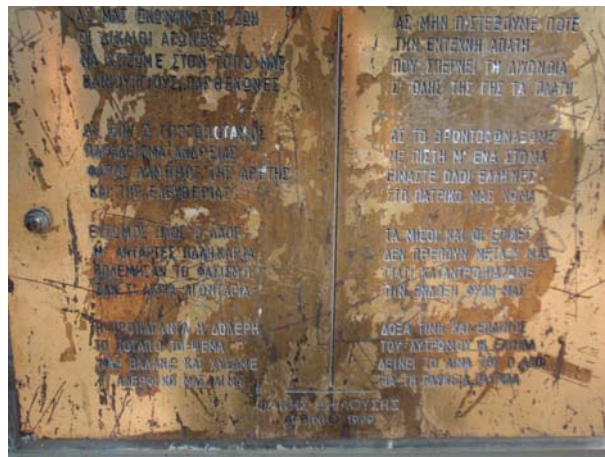 ΑΣ ΜΑΣ ΕΝΩΝΟΥΝ ΣΤΗ ΖΩΗ
ΟΙ ΔΙΚΑΙΟΙ ΑΓΩΝΕΣ
ΝΑ ΧΤΙΖΟΜΕ ΣΤΟΝ ΤΟΠΟ ΜΑΣ
ΚΑΙΝΟΥΡΓΙΟΥΣ ΠΑΡΘΕΝΩΝΕΣ
ΠΑΡΑΔΕΙΓΜΑ ΑΝΔΡΕΙΑΣ
ΦΑΡΟΣ ΤΗΣ ΑΡΕΤΗΣ
ΚΑΙ ΤΗΣ ΕΛΕΥΘΕΡΙΑΣ
Ο ΛΑΟΣ
ΑΝΤΑΡΤΕΣ ΠΑΛΛΗΚΑΡΙΑ
ΠΟΛΕΜΗΣΑΝ ΤΟ ΦΑΣΙΣΜΟ
ΣΑΝ Τ' ΑΓΡΙΑ ΛΙΟΝΤΑΡΙΑ
Η ΠΡΟΠΑΓΑΝΔΑ Η ΔΟΛΕΡΗ
ΤΟ ΠΟΤΑΠΟ ΤΟ ΨΕΜΑ
ΜΑΣ ΒΑΛΑΝΕ ΚΑΙ ΧΥΣΑΜΕ
Τ' ΑΔΕΡΦΙΚΟ ΜΑΣ ΑΙΜΑ
ΑΣ ΜΗΝ ΠΙΣΤΕΨΟΥΜΕ ΠΟΤΕ
ΤΗΝ ΕΝΤΕΧΝΗ ΑΠΑΤΗ
ΠΟΥ ΣΠΕΡΝΕΙ ΤΗ ΔΙΧΟΝΟΙΑ
Σ' ΟΛΗΣ ΤΗΣ ΓΗΣ ΤΑ ΠΛΑΤΗ
ΑΣ ΤΟ ΒΡΟΝΤΟΦΩΝΑΞΟΜΕ
ΜΕ ΠΙΣΤΗ Μ' ΕΝΑ ΣΤΟΜΑ
ΕΙΜΑΣΤΕ ΟΛΟΙ ΕΛΛΗΝΕΣ
ΣΤΟ ΠΑΤΡΙΚΟ ΜΑΣ ΧΩΜΑ
ΤΑ ΜΙΣΟΙ ΚΑΙ ΟΙ ΕΡΙΔΕΣ
ΔΕΝ ΠΡΕΠΟΥΝ ΜΕΤΑΞΥ ΜΑΣ
ΓΙΑΤΙ ΚΑΤΑΝΤΡΟΠΙΑΖΟΜΕ
ΤΗΝ ΕΝΔΟΞΗ ΦΥΛΗ ΜΑΣ
ΔΟΞΑ ΤΙΜΗ ΚΑΙ ΕΠΑΙΝΟΣ
ΤΟΥ ΛΥΤΡΩΜΟΥ Η ΕΛΠΙΔΑ
ΔΕΙΧΕΙ ΤΟ ΑΙΜΑ ΤΟΥ Ο ΛΑΟΣ
ΓΙΑ ΤΗ ΠΑΤΡΙΔΑ
1979